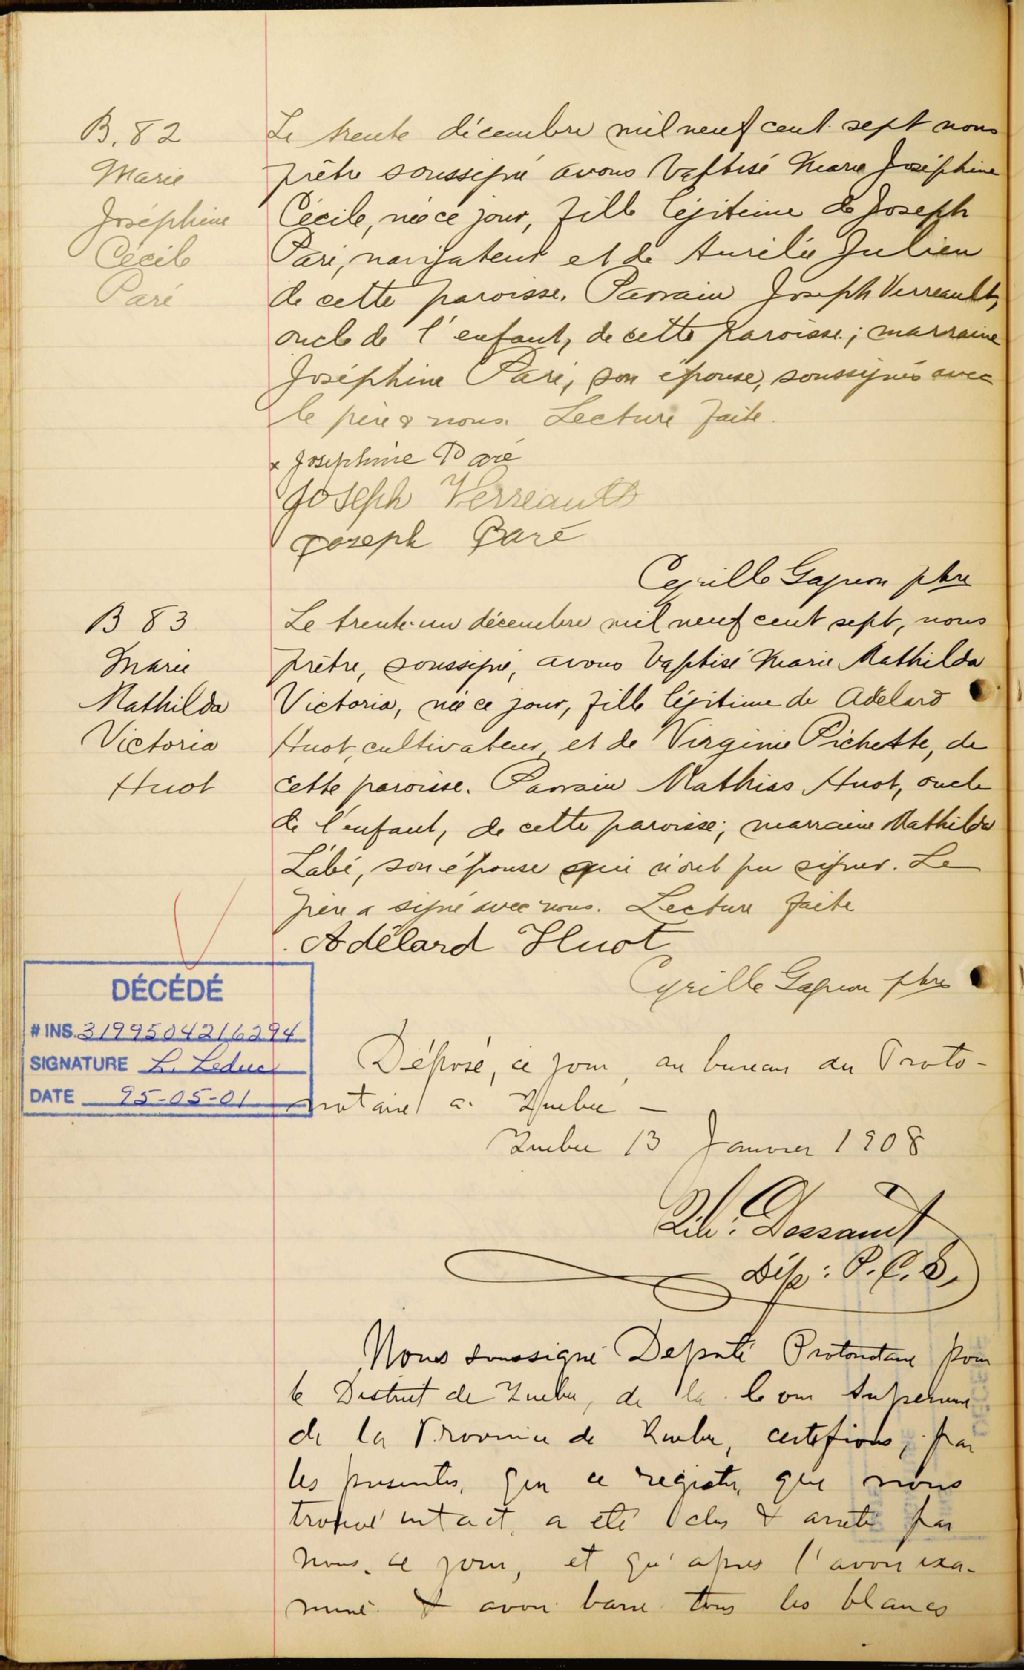 B. 82
Marie
Joséphine
Cécile
Paré
Le trente décembre mil neuf cent sept nous
prêtre soussigné avons baptisé Marie Joséphine
Cécile, née ce jour, fille légitime de Joseph
Paré, navigateur et de Aurélie Julien
de cette paroisse. Parrain Joseph Verreault,
oncle de l'enfant, de cette paroisse; marraine
Joséphine Paré, son épouse, soussignés avec
le père & nous. Lecture faite.
x Josephine Paré
Joseph Verreault
Joseph Paré
Cyrille Gagnon ptre
B 83
Marie
Mathilda
Victoria
Huot
Le trente-un décembre mil neuf cent sept, nous
prêtre, soussigné, avons baptisé Marie Mathilda
Victoria, née ce jour, fille légitime de Adélard
Huot, cultivateur, et de Virginie Pichette, de
cette paroisse. Parrain Mathias Huot, oncle
de l'enfant, de cette paroisse; marraine Mathilda
Labé, son épouse qui n'ont pu signer. Le
père a signé avec nous. Lecture faite
Adélard Huot
Cyrille Gagnon ptre
DÉCÉDÉ
# INS. 3199504216294
SIGNATURE L. Leduc
DATE 95-05-01
Déposé, ce jour, au bureau du Proto-
notaire a Quebec —
Quebec 13 Janvier 1908
Dép: P.C.S.
Nous soussigné Deputé Protonotaire pour
le District de Quebec, de la Cour Superieure
de la Province de Quebec, certifions, par
les presentes, que ce registre, que nous
trouvé intact, a été clos & arreté par
nous, ce jour, et qu'apres l'avoir exa-
miné & avoir barré tous les blancs